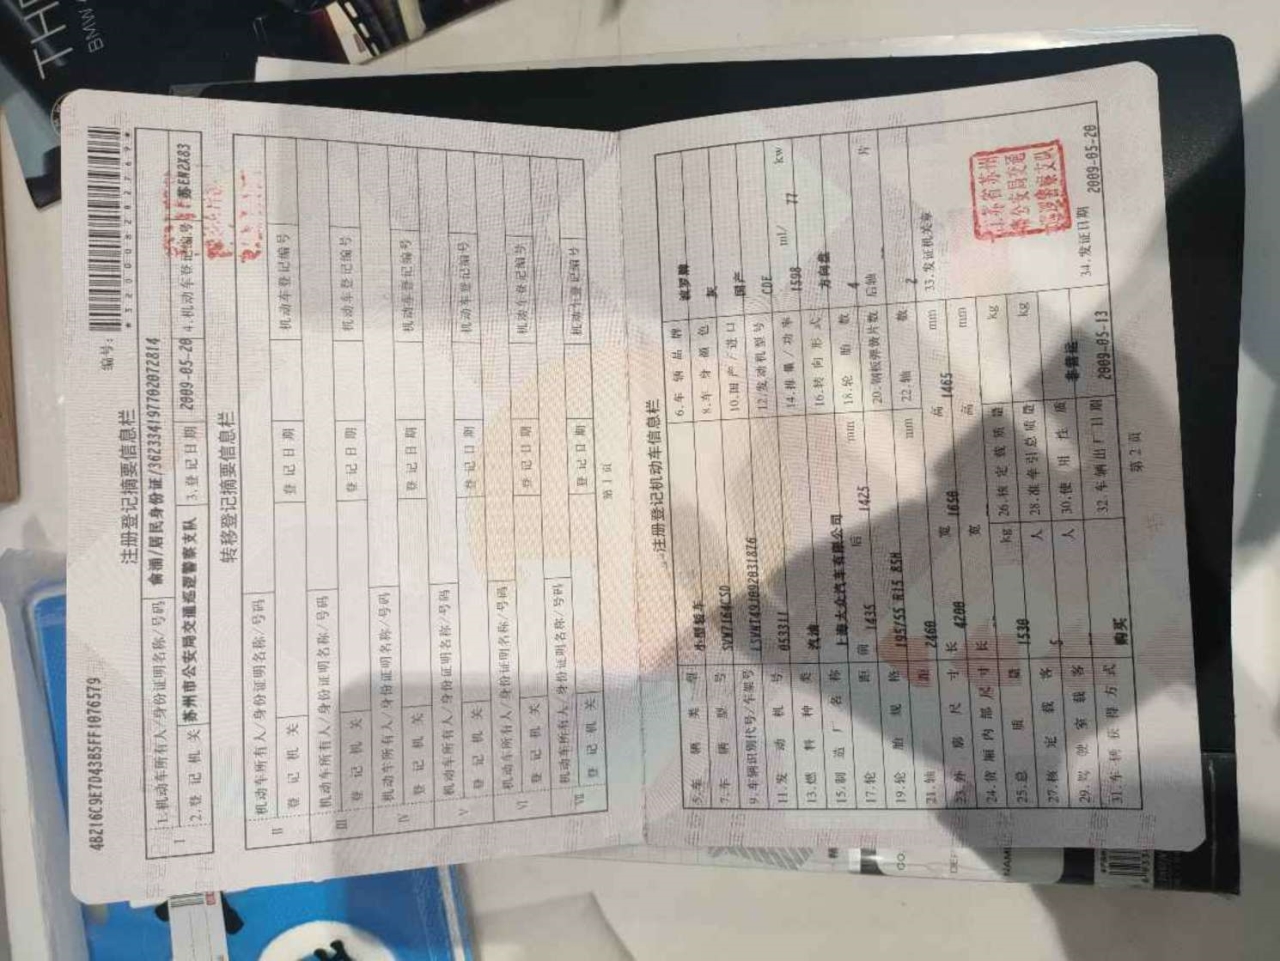 4B216C9E7D43B5FF1076579
编号:
*320008282769*
注册登记摘要信息栏
I 1.机动车所有人/身份证明名称/号码 俞湘/居民身份证/362334197702072814
2.登记机关 苏州市公安局交通巡逻警察支队 3.登记日期 2009-05-20 4.机动车登记编号 苏ER2X83
转移登记摘要信息栏
II 机动车所有人/身份证明名称/号码
登记机关 登记日期 机动车登记编号
III 机动车所有人/身份证明名称/号码
登记机关 登记日期 机动车登记编号
IV 机动车所有人/身份证明名称/号码
登记机关 登记日期 机动车登记编号
V 机动车所有人/身份证明名称/号码
登记机关 登记日期 机动车登记编号
VI 机动车所有人/身份证明名称/号码
登记机关 登记日期 机动车登记编号
VII 机动车所有人/身份证明名称/号码
登记机关 登记日期 机动车登记编号
第1页
注册登记机动车信息栏
5.车辆类型 小型轿车 6.车辆品牌 波罗牌
7.车辆型号 SVW7164CSD 8.车身颜色 灰
9.车辆识别代号/车架号 10.国产/进口 国产
11.发动机号 053311 12.发动机型号 CDE
13.燃料种类 汽油 14.排量/功率 1598 ml/ 77 kw
15.制造厂名称 上海大众汽车有限公司 16.转向形式 方向盘
17.轮距 前 1435 后 1425 mm 18.轮胎数 4
19.轮胎规格 195/55 R15 85H 20.钢板弹簧片数 后轴 片
21.轴距 2460 mm 22.轴数 2
23.外廓尺寸 长 4200 宽 1650 高 1465 mm 33.发证机关章
24.货厢内部尺寸 长 宽 高 mm
25.总质量 1530 kg 26.核定载质量 kg
27.核定载客 5 人 28.准牵引总质量 kg
29.驾驶室载客 人 30.使用性质 非营运
31.车辆获得方式 购买 32.车辆出厂日期 2009-05-13 34.发证日期 2009-05-20
第2页
THE
BMW